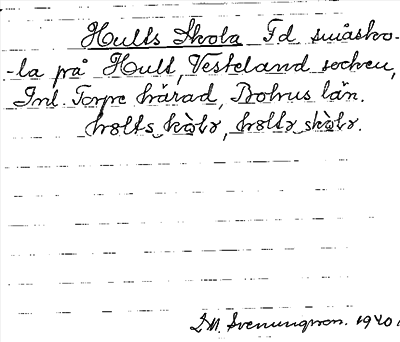 Hults Skola Fd småsko-
-la på Hult, Vesteland socken,
Inl. Torpe härad, Bohus län.
hɷlts skòlɷ, hɷlts skòlɷ.
1940.